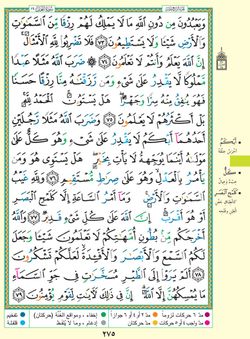 وَيَعْبُدُونَ مِن دُونِ ٱللَّهِ مَا لَا يَمْلِكُ لَهُمْ رِزْقًا مِّنَ ٱلسَّمَٰوَٰتِ
وَٱلْأَرْضِ شَيْـًٔا وَلَا يَسْتَطِيعُونَ ٧٣ فَلَا تَضْرِبُوا۟ لِلَّهِ ٱلْأَمْثَالَ
إِنَّ ٱللَّهَ يَعْلَمُ وَأَنتُمْ لَا تَعْلَمُونَ ٧٤ ضَرَبَ ٱللَّهُ مَثَلًا عَبْدًا
مَّمْلُوكًا لَّا يَقْدِرُ عَلَىٰ شَىْءٍ وَمَن رَّزَقْنَٰهُ مِنَّا رِزْقًا حَسَنًا
فَهُوَ يُنفِقُ مِنْهُ سِرًّا وَجَهْرًا هَلْ يَسْتَوُۥنَ ٱلْحَمْدُ لِلَّهِ
بَلْ أَكْثَرُهُمْ لَا يَعْلَمُونَ ٧٥ وَضَرَبَ ٱللَّهُ مَثَلًا رَّجُلَيْنِ
أَحَدُهُمَآ أَبْكَمُ لَا يَقْدِرُ عَلَىٰ شَىْءٍ وَهُوَ كَلٌّ عَلَىٰ
مَوْلَىٰهُ أَيْنَمَا يُوَجِّههُّ لَا يَأْتِ بِخَيْرٍ هَلْ يَسْتَوِى هُوَ وَمَن
يَأْمُرُ بِٱلْعَدْلِ وَهُوَ عَلَىٰ صِرَٰطٍ مُّسْتَقِيمٍ ٧٦ وَلِلَّهِ غَيْبُ
ٱلسَّمَٰوَٰتِ وَٱلْأَرْضِ وَمَآ أَمْرُ ٱلسَّاعَةِ إِلَّا كَلَمْحِ ٱلْبَصَرِ
أَوْ هُوَ أَقْرَبُ إِنَّ ٱللَّهَ عَلَىٰ كُلِّ شَىْءٍ قَدِيرٌ ٧٧ وَٱللَّهُ
أَخْرَجَكُم مِّنۢ بُطُونِ أُمَّهَٰتِكُمْ لَا تَعْلَمُونَ شَيْـًٔا وَجَعَلَ
لَكُمُ ٱلسَّمْعَ وَٱلْأَبْصَٰرَ وَٱلْأَفْـِٔدَةَ لَعَلَّكُمْ تَشْكُرُونَ
٧٨ أَلَمْ يَرَوْا۟ إِلَى ٱلطَّيْرِ مُسَخَّرَٰتٍ فِى جَوِّ ٱلسَّمَآءِ
مَا يُمْسِكُهُنَّ إِلَّا ٱللَّهُ إِنَّ فِى ذَٰلِكَ لَءَايَٰتٍ لِّقَوْمٍ يُؤْمِنُونَ ٧٩
٢٧٥